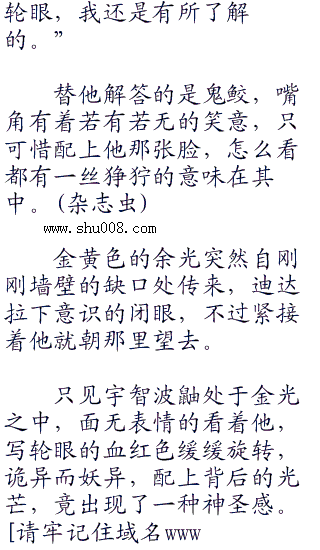 轮眼，我还是有所了解
的。”
替他解答的是鬼鲛，嘴
角有着若有若无的笑意，只
可惜配上他那张脸，怎么看
都有一丝狰狞的意味在其
中。(杂志虫)
www.shu008.com
金黄色的余光突然自刚
刚墙壁的缺口处传来，迪达
拉下意识的闭眼，不过紧接
着他就朝那里望去。
只见宇智波鼬处于金光
之中，面无表情的看着他，
写轮眼的血红色缓缓旋转，
诡异而妖异，配上背后的光
芒，竟出现了一种神圣感。
[请牢记住域名www